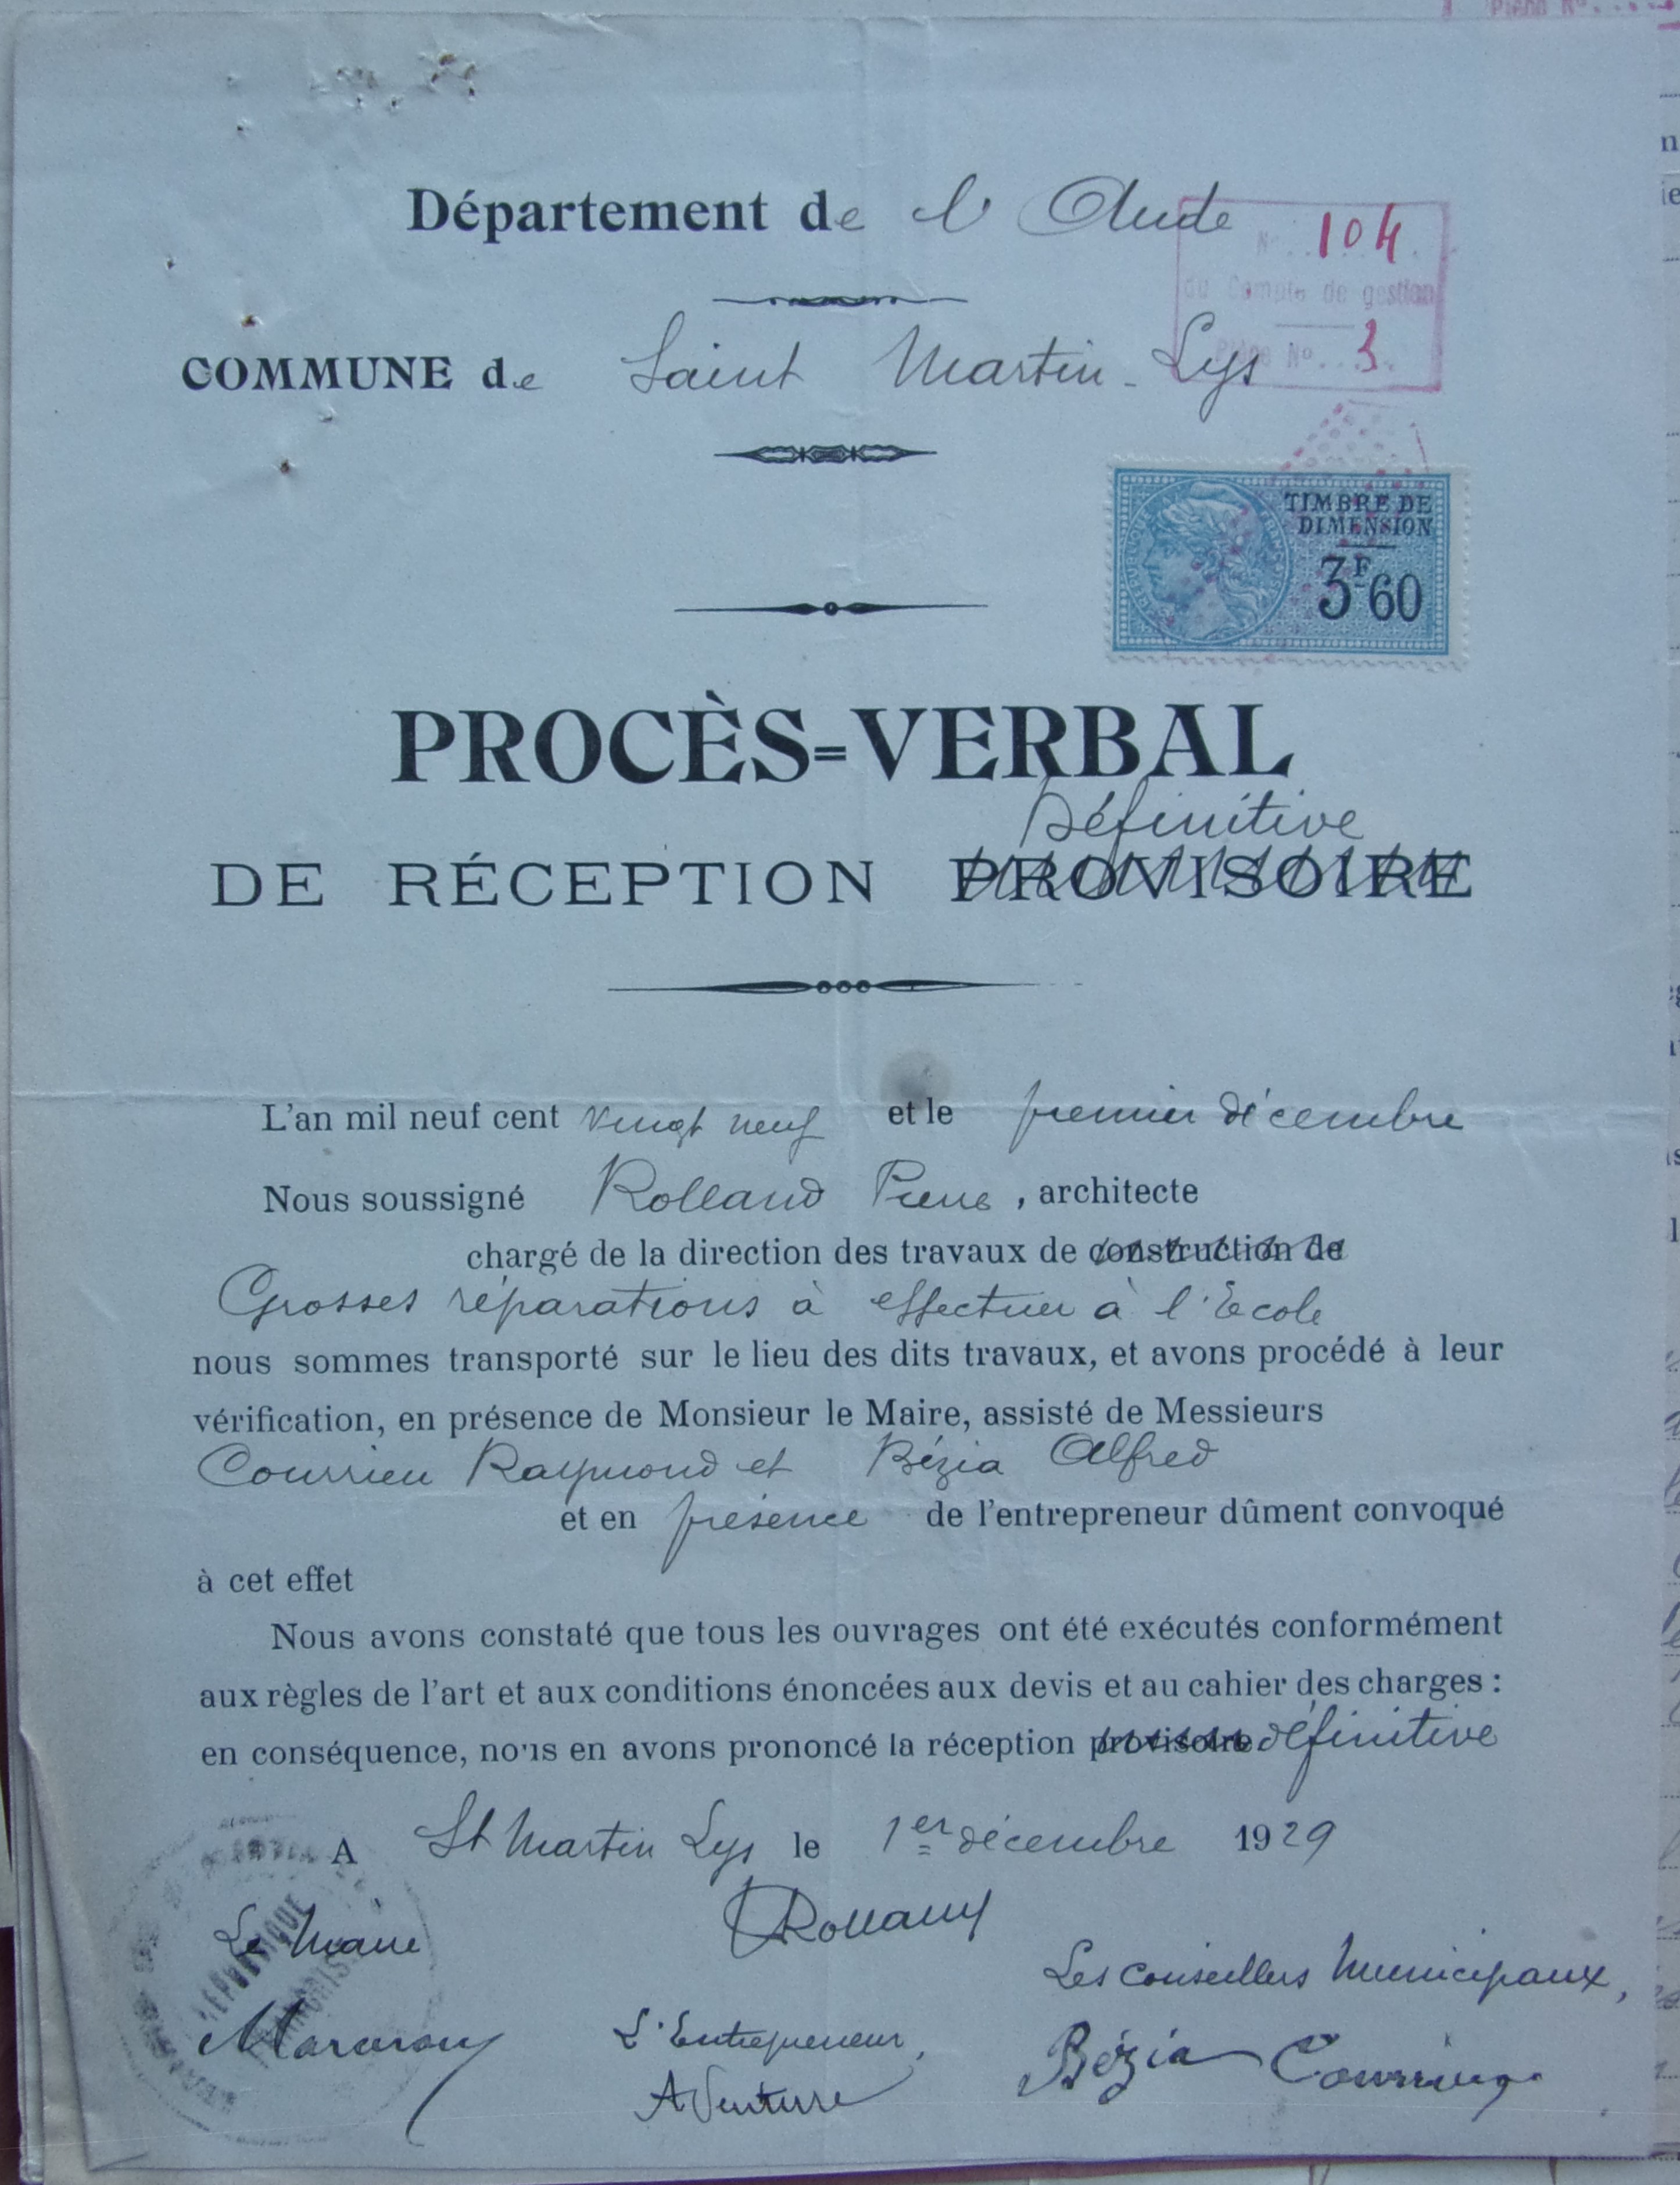 Département de l'Aude
N° 104
du Compte de gestion
COMMUNE de Saint Martin-Lys
Pièce N° 3
TIMBRE DE
DIMENSION
3F60
PROCÈS=VERBAL
Définitive
DE RÉCEPTION PROVISOIRE
L'an mil neuf cent vingt neuf et le premier décembre
Nous soussigné Rolland Pierre, architecte
chargé de la direction des travaux de construction de
Grosses réparations à effectuer à l'Ecole
nous sommes transporté sur le lieu des dits travaux, et avons procédé à leur
vérification, en présence de Monsieur le Maire, assisté de Messieurs
Courrieu Raymond et Bézia Alfred
et en présence de l'entrepreneur dûment convoqué
à cet effet
Nous avons constaté que tous les ouvrages ont été exécutés conformément
aux règles de l'art et aux conditions énoncées aux devis et au cahier des charges :
en conséquence, nous en avons prononcé la réception provisoire définitive
A St Martin Lys le 1er décembre 1929
RÉPUBLIQUE
FRANÇAISE
Le Maire
Rolland
Les conseillers municipaux,
L'Entrepreneur,
Bézia Courrieu
A Venture